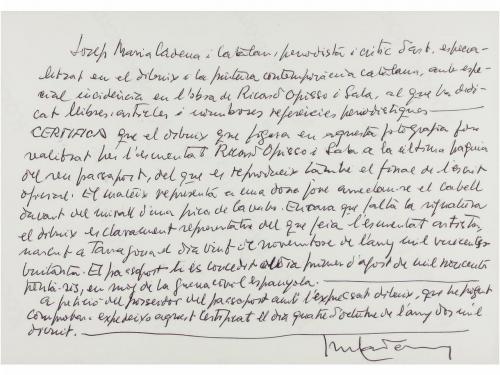 Josep Maria Cadena i Catalan, periodista i crític d'art, especia-
litzat en el dibuix i la pintura contemporània catalana, amb espe-
cial incidència en l'obra de Ricard Opisso i Sala, al que ha dedi-
cat llibres, articles i nombroses referències periodístiques
CERTIFICA que el dibuix que figura en aquesta fotografia fou
realitzat per l'esmentat Ricard Opisso i Sala a la última pàgina
del seu passaport, del que es reprodueix també el final de l'escrit
oficial. El mateix representa a una dona jove arreglant-se el cabell
davant del mirall d'una pica de lavabo. Encara que falta la signatura
el dibuix es clarament representatiu del que feia l'esmentat artista,
nascut a Tarragona el dia vint de novembre de l'any mil vuitcents
vuitanta. El passaport li és concedit el dia primer d'agost de mil noucents
trenta-sis, en moy de la guerra civil espanyola.
A petició del posseidor del passaport amb l'expressat dibuix, que he pogut
comprobar, expedeixo aquest certificat el dia quatre d'octubre de l'any dos mil
divuit.